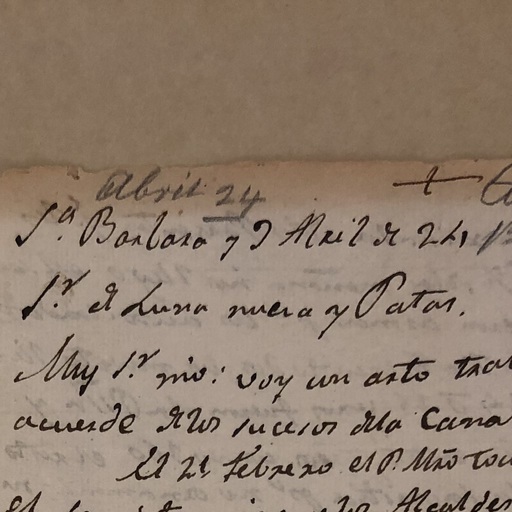 Abril 24
Sª Barbara y 9 Abril de 24,
Sʳ de Luna nueva y Patas.
Muy Sʳ mio: voy con esto
acuerde de los sucesos de la
El 21 Febrero el P. Mro
los Alcaldes